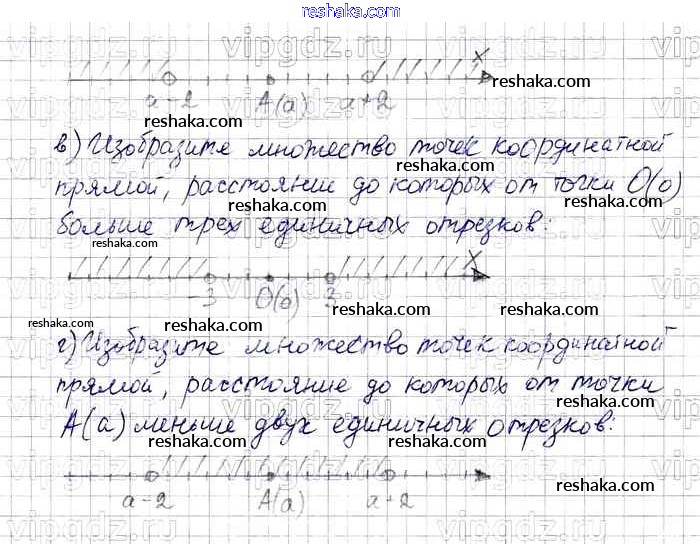 reshaka.com
x
reshaka.com
a-2 A(a) a+2
reshaka.com
в) Изобразите множество точек координатной
reshaka.com
прямой, расстояние до которых от точки O(o)
reshaka.com
больше трех единичных отрезков:
reshaka.com
x
-3 O(o) 3
reshaka.com
reshaka.com
г) Изобразите множество точек координатной
reshaka.com
прямой, расстояние до которых от точки
reshaka.com
A(a) меньше двух единичных отрезков:
reshaka.com reshaka.com
a-2 A(a) a+2
reshaka.com
vipgdz.ru